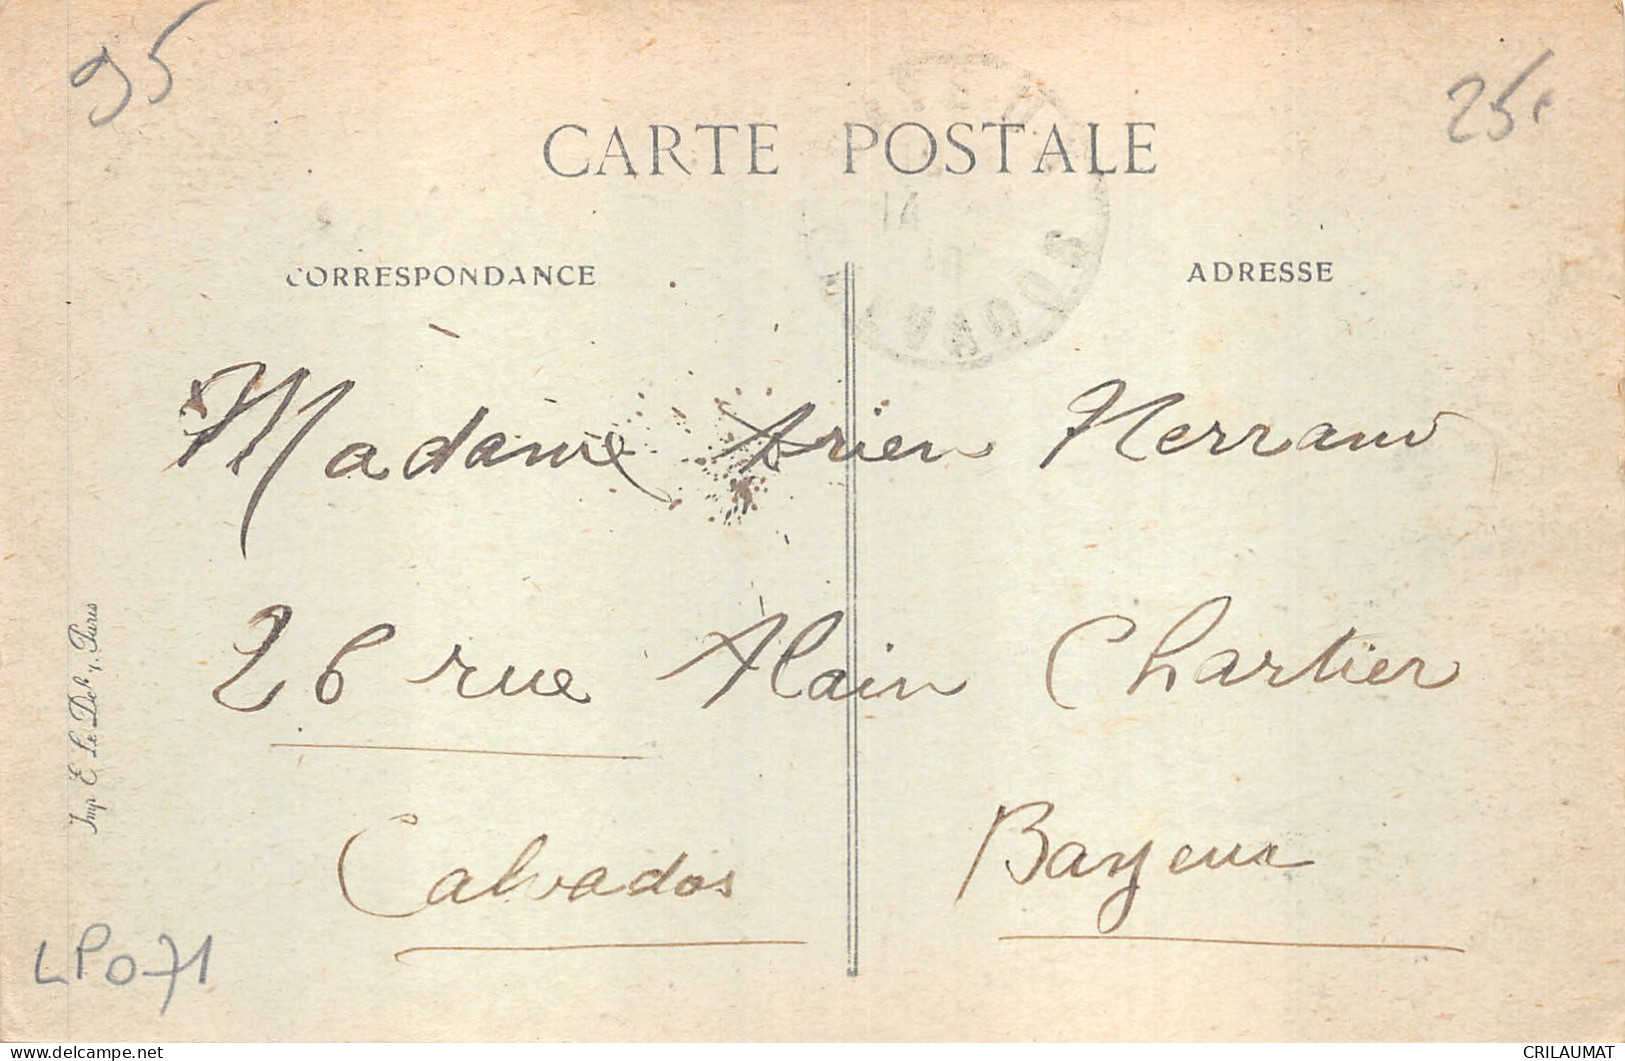 95
25
CARTE POSTALE
CORRESPONDANCE
ADRESSE
14
CALVADOS
Madame Arien Nerrand
26 rue Alain Chartier
Calvados Bayeux
Imp. E. Le Deley, Paris
LP071
delcampe.net
CRILAUMAT